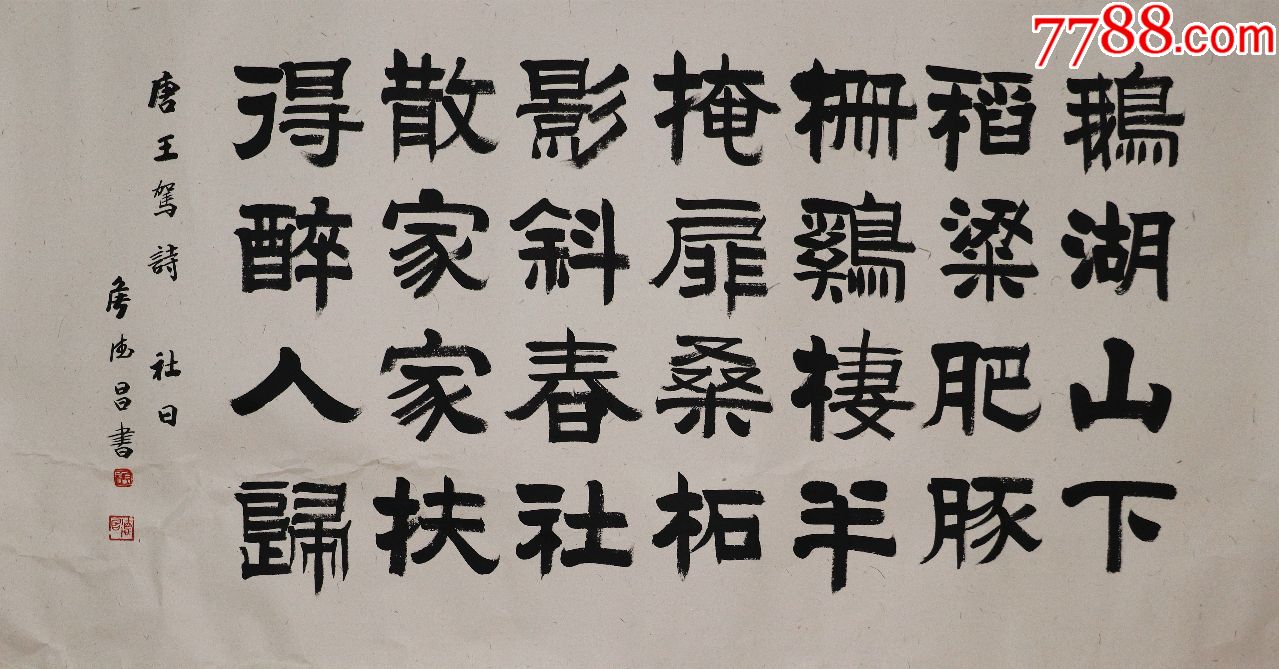 7788.com
鵝湖山下
稻粱肥豚
柵鷄棲半
掩扉桑柘
影斜春社
散家家扶
得醉人歸
唐王駕詩 社日
詹德昌書